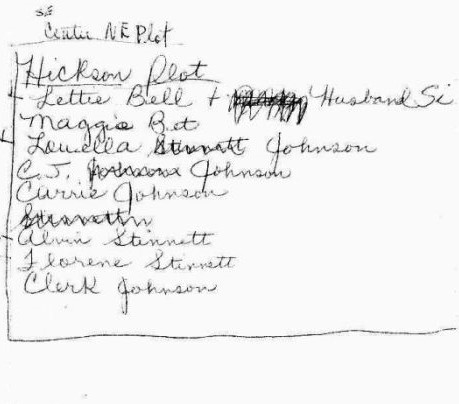 SE
Center NE Plot
Hickson Plot
Lettie Bell + Husband Si
Maggie B
Louella Stinnett Johnson
C.J. Johnson
Currie Johnson
Alvin Stinnett
Florene Stinnett
Clerk Johnson